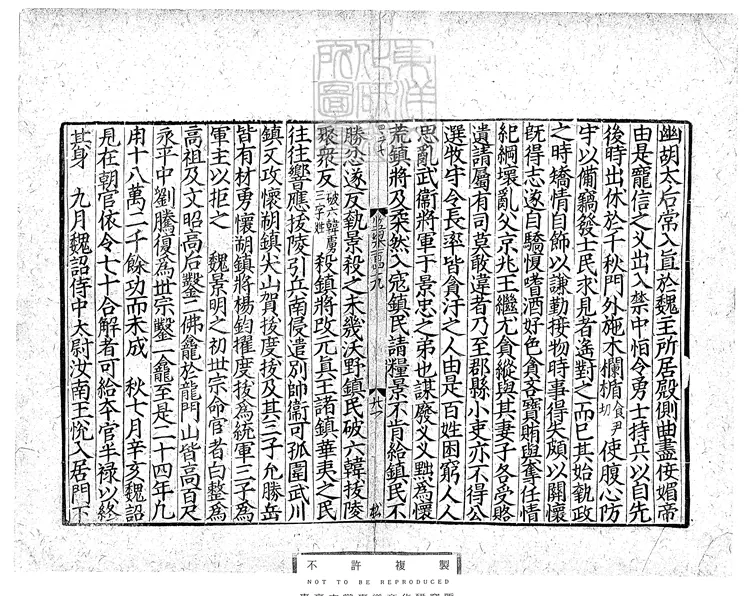 幽胡太后常入直於魏主所居殿側曲盡佞媚帝
由是寵信之乂出入禁中恒令勇士持兵以自先
後時出休於千秋門外施木欄楯食尹切使腹心防
守以備竊發士民求見者遙對之而已其始執政
之時矯情自飾以謙勤接物時事得失頗以關懷
既得志遂自驕愎嗜酒好色貪吝寶賄與奪任情
紀綱壞亂父京兆王繼尤貪縱與其妻子各受賂
遺請屬有司莫敢違者乃至郡縣小吏亦不得公
選牧守令長率皆貪汙之人由是百姓困窮人人
思亂武衛將軍于景忠之弟也謀廢乂乂黜為懷
荒鎮將及柔然入寇鎮民請糧景不肯給鎮民不
百四九
廿一
松
勝忿遂反執景殺之未幾沃野鎮民破六韓拔陵
聚衆反破六韓虜三字姓殺鎮將改元真王諸鎮華夷之民
往往響應拔陵引兵南侵遣別帥衛可孤圍武川
鎮又攻懷朔鎮尖山賀拔度拔及其三子允勝岳
皆有材勇懷朔鎮將楊鈞擢度拔為統軍三子為
軍主以拒之 魏景明之初世宗命宦者白整為
高祖及文昭高后鑿二佛龕於龍門山皆高百尺
永平中劉騰復為世宗鑿一龕至是二十四年凡
用十八萬二千餘功而未成 秋七月辛亥魏詔
見在朝官依令七十合解者可給本官半祿以終
其身 九月魏詔侍中太尉汝南王悅入居門下
不許複製
NOT TO BE REPRODUCED